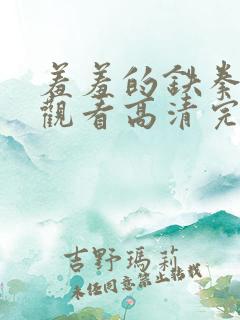 羞羞的鉄拳
觀看高清完
吉野瑪莉
未经同意禁止转载